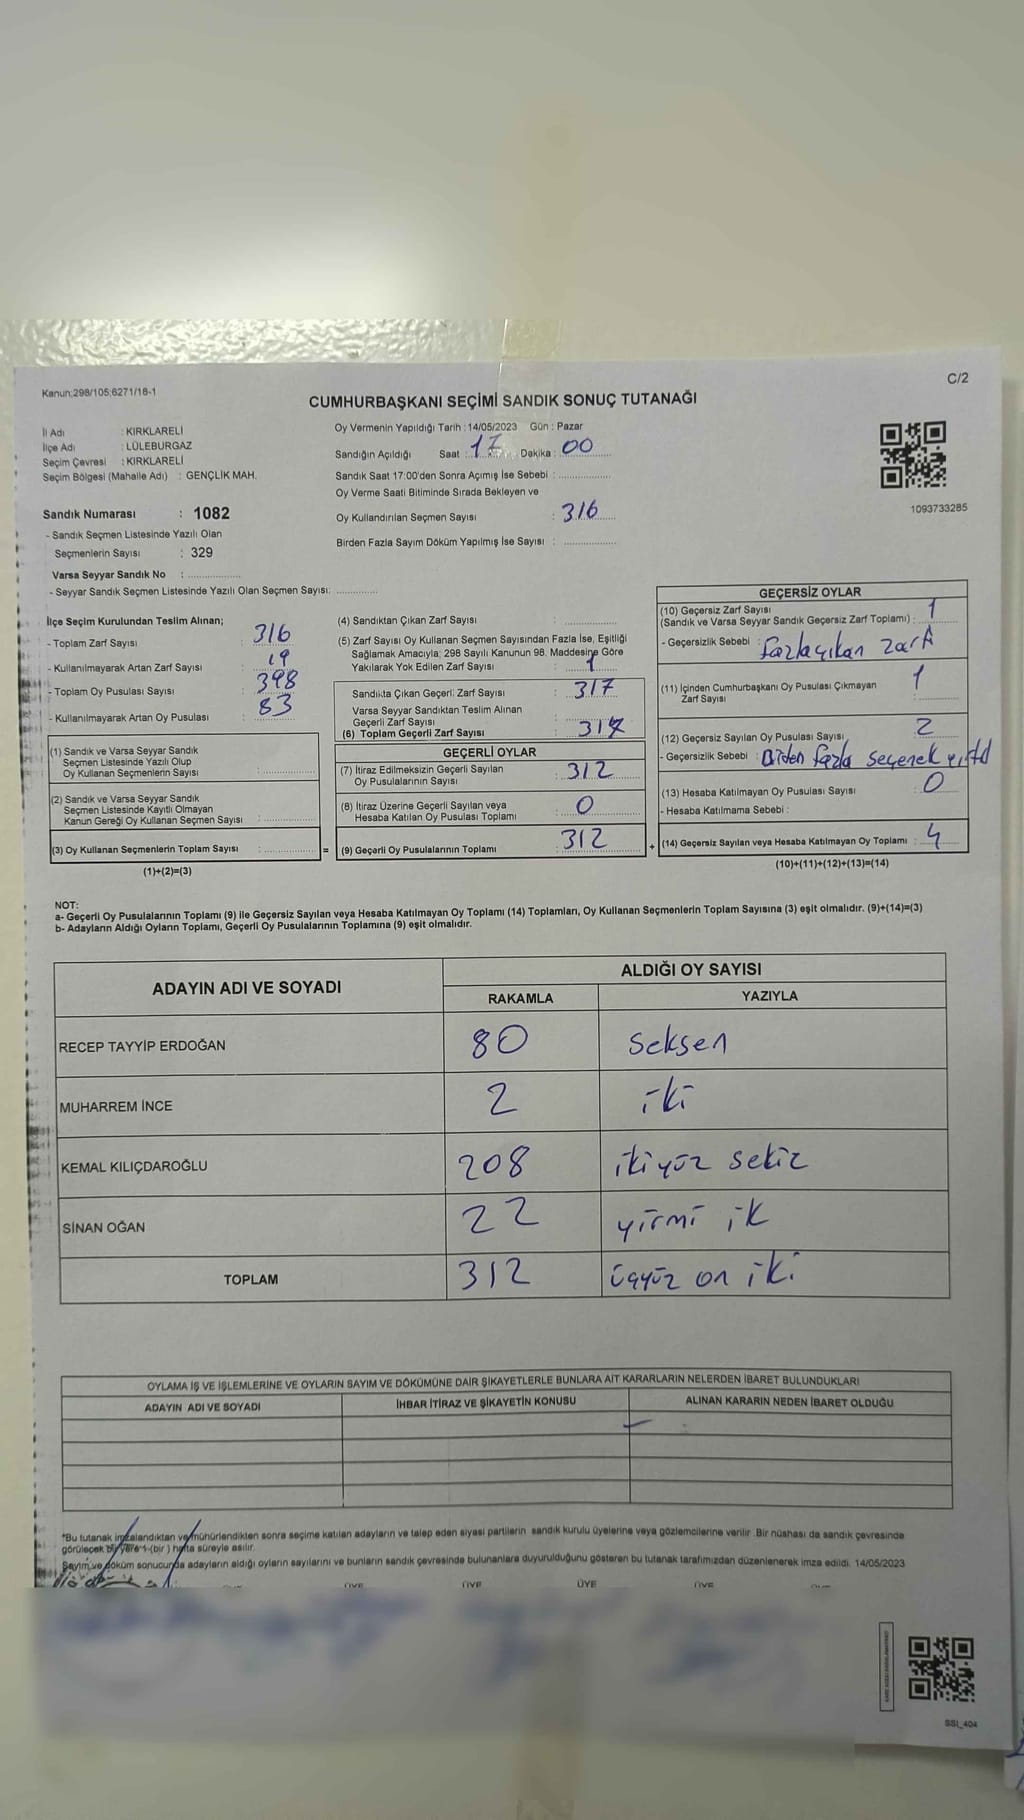 C/2
Kanun:298/105;6271/18-1
CUMHURBAŞKANI SEÇİMİ SANDIK SONUÇ TUTANAĞI
İl Adı : KIRKLARELİ
İlçe Adı : LÜLEBURGAZ
Seçim Çevresi : KIRKLARELİ
Seçim Bölgesi (Mahalle Adı) : GENÇLİK MAH.
Sandık Numarası : 1082
- Sandık Seçmen Listesinde Yazılı Olan
Seçmenlerin Sayısı : 329
Varsa Seyyar Sandık No :
- Seyyar Sandık Seçmen Listesinde Yazılı Olan Seçmen Sayısı:
Oy Vermenin Yapıldığı Tarih : 14/05/2023 Gün : Pazar
Sandığın Açıldığı Saat : 17 Dakika : 00
Sandık Saat 17:00'den Sonra Açımış İse Sebebi :
Oy Verme Saati Bitiminde Sırada Bekleyen ve
Oy Kullandırılan Seçmen Sayısı : 316
Birden Fazla Sayım Döküm Yapılmış İse Sayısı :
1093733285
İlçe Seçim Kurulundan Teslim Alınan;
- Toplam Zarf Sayısı : 316
- Kullanılmayarak Artan Zarf Sayısı : 19
- Toplam Oy Pusulası Sayısı : 398
- Kullanılmayarak Artan Oy Pusulası : 83
(1) Sandık ve Varsa Seyyar Sandık
Seçmen Listesinde Yazılı Olup
Oy Kullanan Seçmenlerin Sayısı :
(2) Sandık ve Varsa Seyyar Sandık
Seçmen Listesinde Kayıtlı Olmayan
Kanun Gereği Oy Kullanan Seçmen Sayısı :
(3) Oy Kullanan Seçmenlerin Toplam Sayısı : =
(1)+(2)=(3)
(4) Sandıktan Çıkan Zarf Sayısı :
(5) Zarf Sayısı Oy Kullanan Seçmen Sayısından Fazla İse, Eşitliği
Sağlamak Amacıyla, 298 Sayılı Kanunun 98. Maddesine Göre
Yakılarak Yok Edilen Zarf Sayısı : 1
Sandıkta Çıkan Geçerli Zarf Sayısı : 317
Varsa Seyyar Sandıktan Teslim Alınan
Geçerli Zarf Sayısı :
(6) Toplam Geçerli Zarf Sayısı : 317
GEÇERLİ OYLAR
(7) İtiraz Edilmeksizin Geçerli Sayılan
Oy Pusulalarının Sayısı : 312
(8) İtiraz Üzerine Geçerli Sayılan veya
Hesaba Katılan Oy Pusulası Toplamı : 0
(9) Geçerli Oy Pusulalarının Toplamı : 312 +
GEÇERSİZ OYLAR
(10) Geçersiz Zarf Sayısı
(Sandık ve Varsa Seyyar Sandık Geçersiz Zarf Toplamı) : 1
- Geçersizlik Sebebi : fazla çıkan zarf
(11) İçinden Cumhurbaşkanı Oy Pusulası Çıkmayan
Zarf Sayısı : 1
(12) Geçersiz Sayılan Oy Pusulası Sayısı : 2
- Geçersizlik Sebebi : Biden fazla seçenek
(13) Hesaba Katılmayan Oy Pusulası Sayısı : 0
- Hesaba Katılmama Sebebi :
(14) Geçersiz Sayılan veya Hesaba Katılmayan Oy Toplamı : 4
(10)+(11)+(12)+(13)=(14)
NOT:
a- Geçerli Oy Pusulalarının Toplamı (9) ile Geçersiz Sayılan veya Hesaba Katılmayan Oy Toplamı (14) Toplamları, Oy Kullanan Seçmenlerin Toplam Sayısına (3) eşit olmalıdır. (9)+(14)=(3)
b- Adayların Aldığı Oyların Toplamı, Geçerli Oy Pusulalarının Toplamına (9) eşit olmalıdır.
ADAYIN ADI VE SOYADI
ALDIĞI OY SAYISI
RAKAMLA YAZIYLA
RECEP TAYYİP ERDOĞAN 80 seksen
MUHARREM İNCE 2 iki
KEMAL KILIÇDAROĞLU 208 ikiyüz sekiz
SİNAN OĞAN 22 yirmi ik
TOPLAM 312 üçyüz on iki
OYLAMA İŞ VE İŞLEMLERİNE VE OYLARIN SAYIM VE DÖKÜMÜNE DAİR ŞİKAYETLERLE BUNLARA AİT KARARLARIN NELERDEN İBARET BULUNDUKLARI
ADAYIN ADI VE SOYADI İHBAR İTİRAZ VE ŞİKAYETİN KONUSU ALINAN KARARIN NEDEN İBARET OLDUĞU
*Bu tutanak imzalandıktan ve mühürlendikten sonra seçime katılan adayların ve talep eden siyasi partilerin sandık kurulu üyelerine veya gözlemcilerine verilir. Bir nüshası da sandık çevresinde
görülecek bir yere 1 (bir) hafta süreyle asılır.
Sayım ve döküm sonucunda adayların aldığı oyların sayılarını ve bunların sandık çevresinde bulunanlara duyurulduğunu gösteren bu tutanak tarafımızdan düzenlenerek imza edildi. 14/05/2023
ÜYE ÜYE ÜYE ÜYE
SSI_404